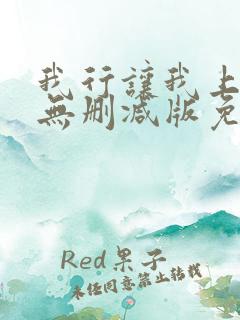 我行讓我上
無刪减版免
Red果子
未经同意禁止转载